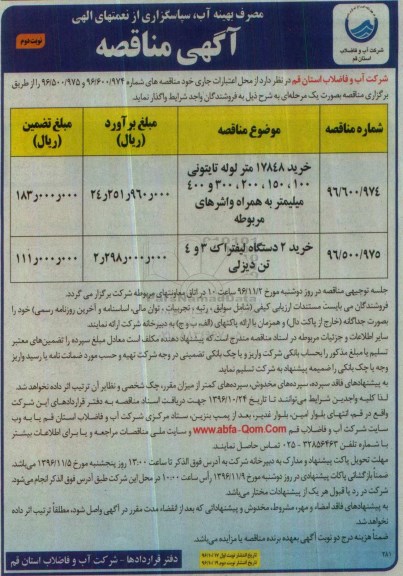 مصرف بهینه آب، سپاسگزاری از نعمتهای الهی
آگهی مناقصه
نوبت دوم
شرکت آب و فاضلاب
استان قم
شرکت آب و فاضلاب استان قم در نظر دارد از محل اعتبارات جاری خود مناقصه های شماره ۹۶/۶۰۰/۹۷۴ و ۹۶/۵۰۰/۹۷۵ را از طریق
برگزاری مناقصه بصورت یک مرحله‌ای به شرح ذیل به فروشندگان واجد شرایط واگذار نماید.
شماره مناقصه
موضوع مناقصه
مبلغ برآورد (ریال)
مبلغ تضمین (ریال)
۹۶/۶۰۰/۹۷۴
خرید ۱۷۸۴۸ متر لوله تایتونی
۱۰۰ ، ۱۵۰ ، ۲۰۰ ، ۳۰۰ و ۴۰۰
میلیمتر به همراه واشرهای
مربوطه
۲۴ر۲۵۱ر۹۶۰ر۰۰۰
۱۸۳ر۰۰۰ر۰۰۰
۹۶/۵۰۰/۹۷۵
خرید ۲ دستگاه لیفتراک ۳ و ۴
تن دیزلی
۲ر۲۹۸ر۰۰۰ر۰۰۰
۱۱۱ر۰۰۰ر۰۰۰
جلسه توجیهی مناقصه در روز دوشنبه مورخ ۹۶/۱۱/۲ ساعت ۱۰ در اتاق معاونتهای مربوطه شرکت برگزار می گردد.
فروشندگان می بایست مستندات ارزیابی کیفی (شامل سوابق، رتبه ، تجربیات ، توان مالی، اساسنامه و آخرین روزنامه رسمی) خود را
بصورت جداگانه (خارج از پاکت دال) و همزمان با ارائه پاکتهای (الف، ب و ج) به دبیرخانه شرکت ارائه نمایند.
سایر اطلاعات و جزئیات مربوطه در اسناد مناقصه مندرج است.که پیشنهاد دهنده مکلف است معادل مبلغ سپرده را تضمین‌های معتبر
تسلیم یا مبلغ مذکور را بحساب بانکی شرکت واریز و یا چک بانکی تضمینی در وجه شرکت تهیه و حسب مورد ضمانت نامه یا رسید واریز
وجه یا چک بانکی را ضمیمه پیشنهاد به شرکت تسلیم نماید.
به پیشنهادهای فاقد سپرده، سپرده‌های مخدوش، سپرده‌های کمتر از میزان مقرر، چک شخصی و نظایر آن ترتیب اثر داده نخواهد شد.
لذا کلیه واجدین شرایط می‌توانند تا تاریخ ۱۳۹۶/۱۰/۲۴ جهت دریافت اسناد مناقصه به دفتر قراردادهای این شرکت
واقع در قم، انتهای بلوار امین، بلوار غدیر، بعد از پمپ بنزین، ستاد مرکزی شرکت آب و فاضلاب استان قم یا به وب
سایت شرکت آب و فاضلاب قم www.abfa-Qom.Com و سایت ملی مناقصات مراجعه و یا برای اطلاعات بیشتر
با شماره تلفن ۳۲۸۵۶۴۶۳ - ۰۲۵ تماس حاصل نمایند.
مهلت تحویل پاکت پیشنهاد و مدارک به دبیرخانه شرکت به آدرس فوق الذکر تا ساعت ۱۳:۰۰ روز پنجشنبه مورخ ۱۳۹۶/۱۱/۵ می‌باشد.
ضمناً بازگشائی پاکات پیشنهادی در روز دوشنبه مورخ ۱۳۹۶/۱۱/۹ رأس ساعت ۱۰:۰۰ در محل این شرکت طبق آدرس فوق الذکر انجام می‌شود.
شرکت در رد یا قبول هر یک از پیشنهادات مختار می‌باشد.
به پیشنهادهای فاقد امضاء و مهر، مشروط، مخدوش و پیشنهاداتی که بعد از انقضاء مدت مقرر در آگهی واصل شود، مطلقاً ترتیب اثر داده
نخواهد شد.
ضمناً هزینه درج دو نوبت آگهی بعهده برنده مناقصه یا مزایده می‌باشد.
۲۸۱
تاریخ انتشار نوبت اول ۹۶/۱۰/۱۷
تاریخ انتشار نوبت دوم ۹۶/۱۰/۱۹
دفتر قراردادها - شرکت آب و فاضلاب استان قم